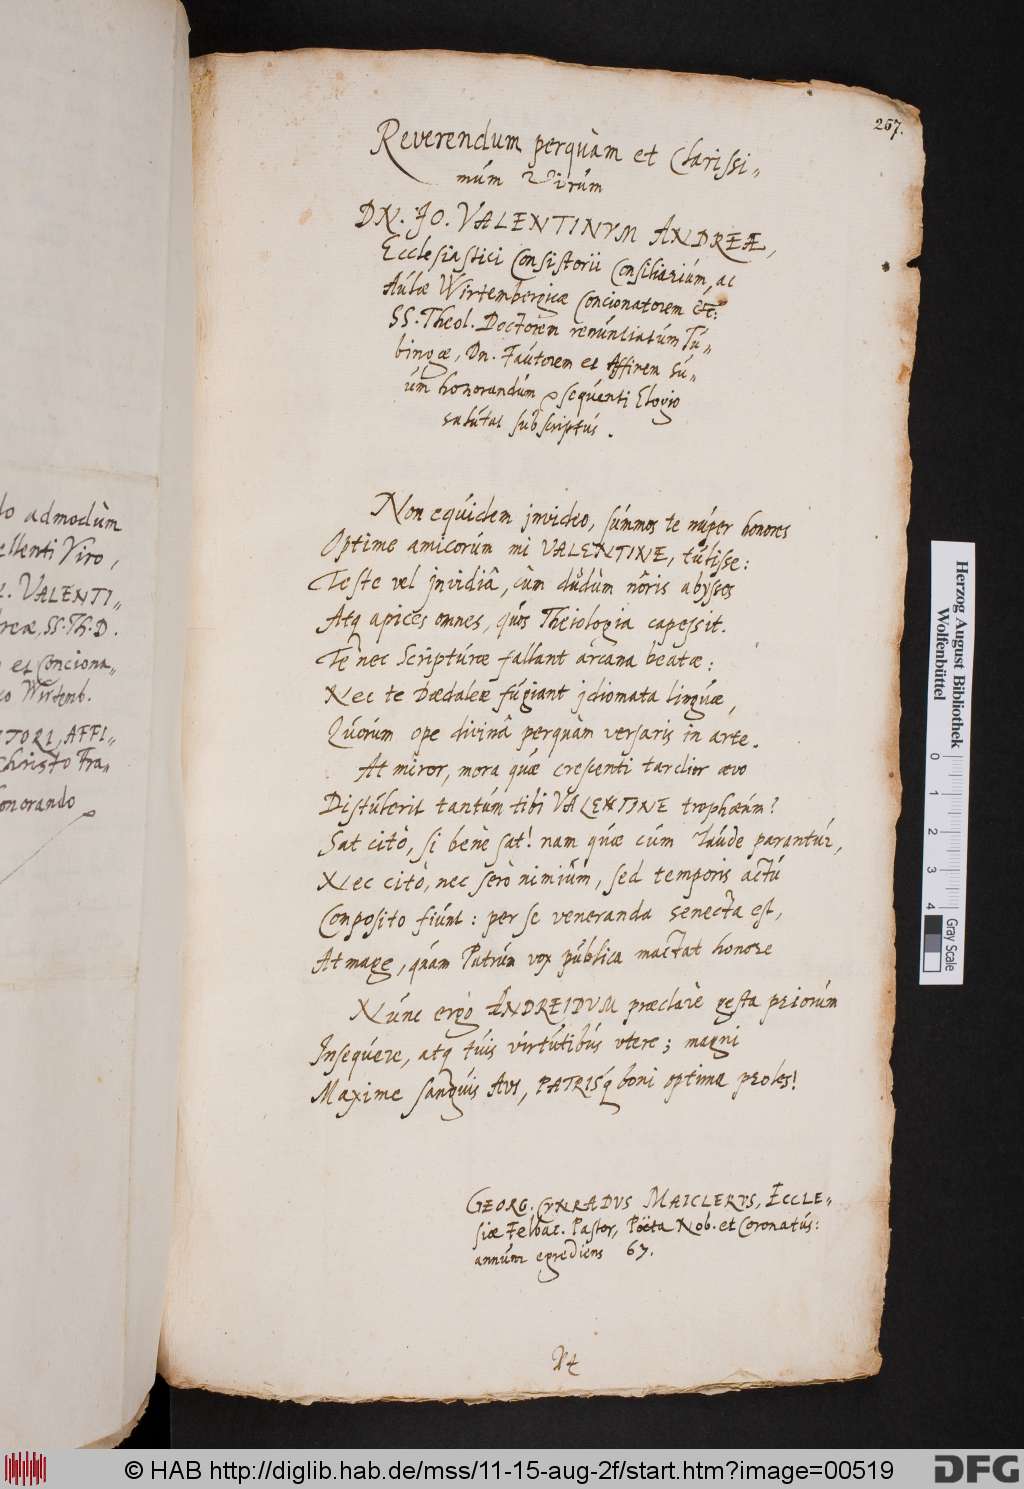 267.
Reverendum perquàm et Clarissi„
múm Virúm
DN. JO. VALENTINVM ANDREÆ,
Ecclesiastici Consistorii Consiliariúm, ac
Aúlæ Wirtembergicæ Concionatorem &c:
SS. Theol. Doctorem renúntiatúm Tú„
bingæ, Dn. Faútorem et Affinem sú„
úm honorandúm seqúenti Elogio
salútat súbscriptús.
Non eqúidem jnvideo, súmmos te núper honores
Optime amicorúm mi VALENTINE, túlisse:
Teste vel jnvidiâ, cùm dúdùm nôris abyssos
Atq apices omnes, qúos Theiologia capessit.
Te nec Scriptúræ fallant arcana beatæ:
Nec te Dædaleæ fúgiant jdiomata lingúæ,
Qúorúm ope divinâ perquàm versaris in arte.
At miror, mora qúæ crescenti tardior ævo
Distúlerit tantúm tibi VALENTINE trophæúm?
Sat citò, si benè sat! nam qúæ cúm laúde parantúr,
Nec citò, nec serò nimiúm, sed temporis actú
Composito fiúnt: per se veneranda senecta est,
At mage, qúàm Patrúm vox pública mactat honore
Núnc ergò ANDREIDVM præclarè gesta priorúm
Inseqúere, atq túis virtútibús vtere; magni
Maxime sangúis AVI, PATRISq boni optima proles!
GEORG. CVNRADVS MAICLERVS, ECCLE„
siæ Felbac. Pastor, Poëta Nob. et Coronatús:
annúm egrediens 67.
do admodùm
ellenti Viro,
VALENTI„
reæ, SS. Th. D.
et Conciona„
co Wirtemb.
TORI, AFFI„
Christo Fra„
honorando
Herzog August Bibliothek
Wolfenbüttel
0 1 2 3 4
Gray Scale
© HAB http://diglib.hab.de/mss/11-15-aug-2f/start.htm?image=00519
DFG